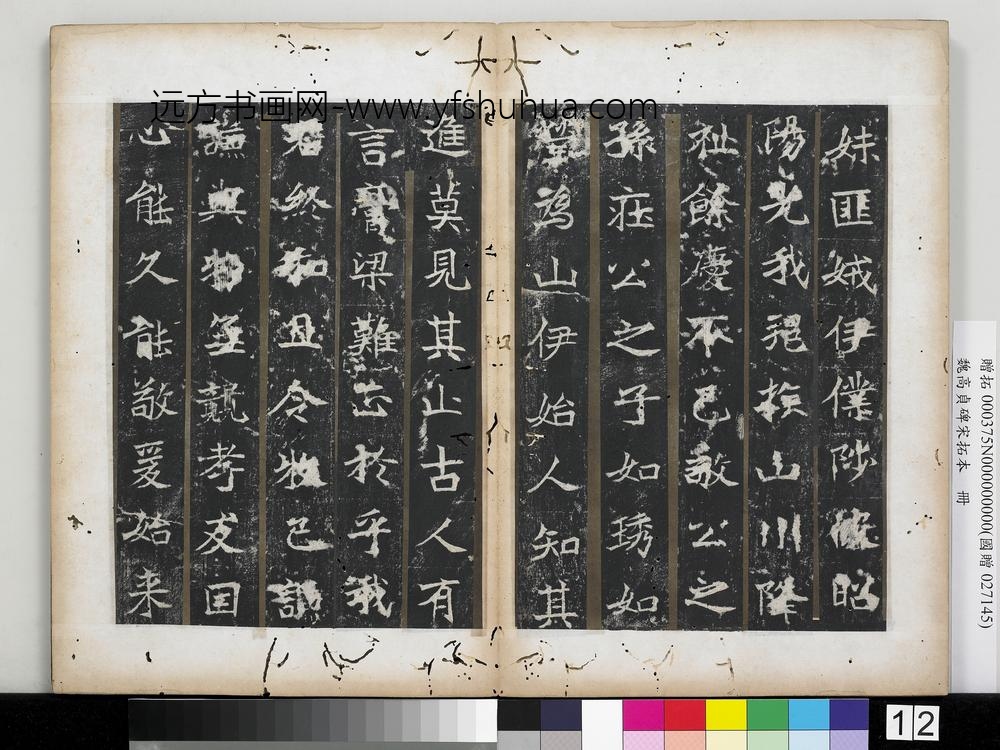 远方书画网-www.yfshuhua.com
妹匪娥伊僕陟恢昭
陽光我祖挨山川降
祉餘慶不已敬公之
孫莊公之子如琇如
瑩為山伊始人知其
進莫見其止古人有
言膏粱難正於乎我
君終和且令牧己謙
撫與物無競孝友因
心能久能敬爰始来
贈拓 000375N000000000(國贈 027145)
魏高貞碑宋拓本 冊
12